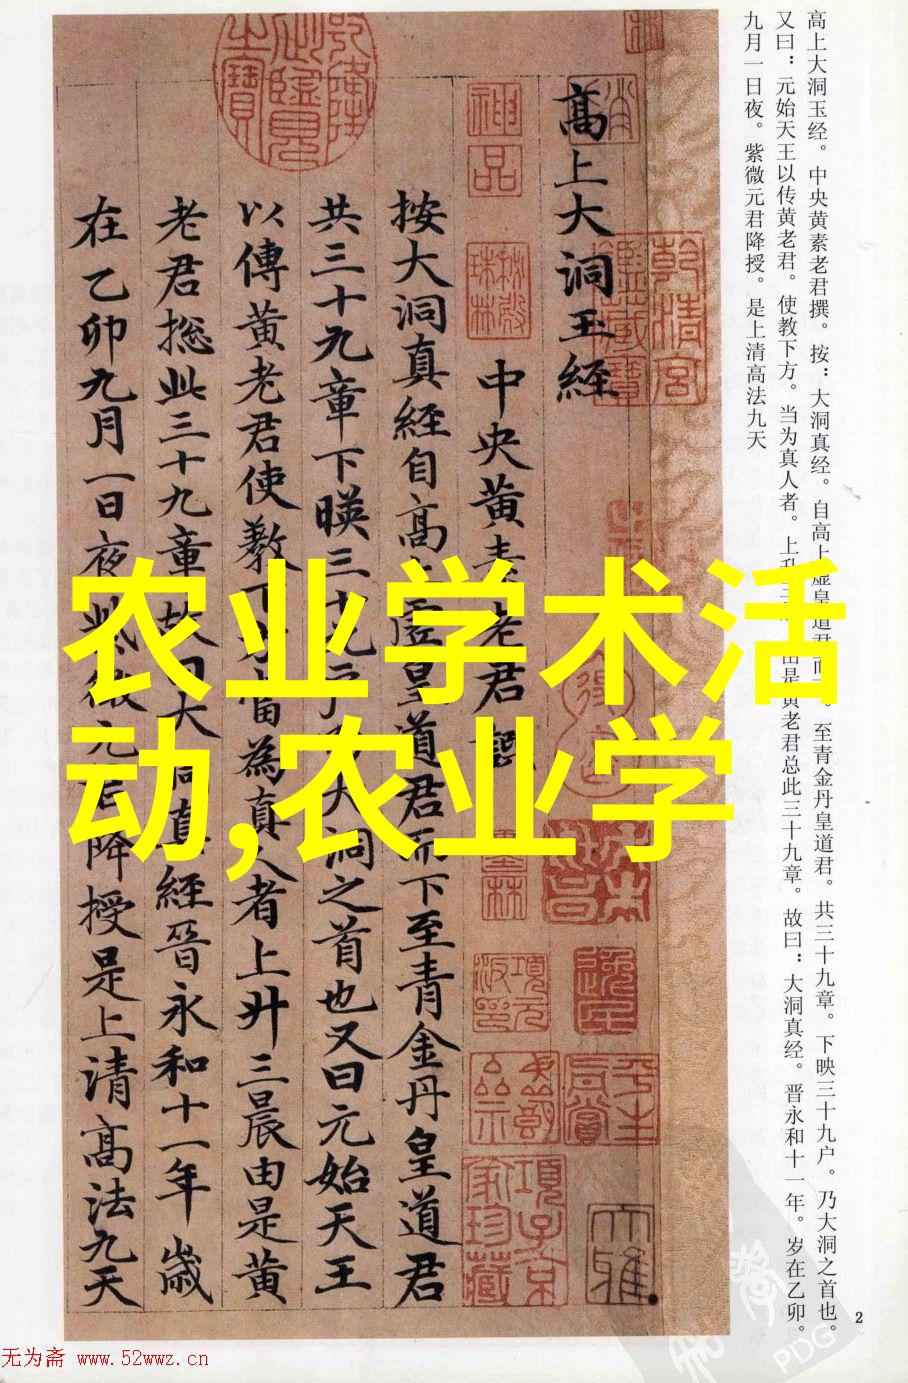 高上大洞玉经。中央黄素老君撰。按：大洞真经。自高上虚皇道君而下。至青金丹皇道君。共三十九章。下映三十九户。乃大洞之首也。
又曰：元始天王以传黄老君。使教下方。当为真人者。上升三
由是黄老君总此三十九章。故曰：大洞真经。晋永和十一年。岁在乙卯。
九月一日夜。紫微元君降授。是上清高法九天
高上大洞玉經
中央黄素老君撰
按大洞真經自高上虚皇道君而下至青金丹皇道君
共三十九章下暎三十九户乃大洞之首也又曰元始天王
以傳黄老君使教下方當為真人者上升三晨由是黄
老君摠此三十九章故曰大洞真經晉永和十一年歲
在乙卯九月一日夜紫微元君降授是上清髙法九天
乾隆御覽之寶
神品
乾清宫鑑藏寶
項子京家珍藏
农业学术活
动,农业学
2
PDG
无为斋 www.52wwz.cn